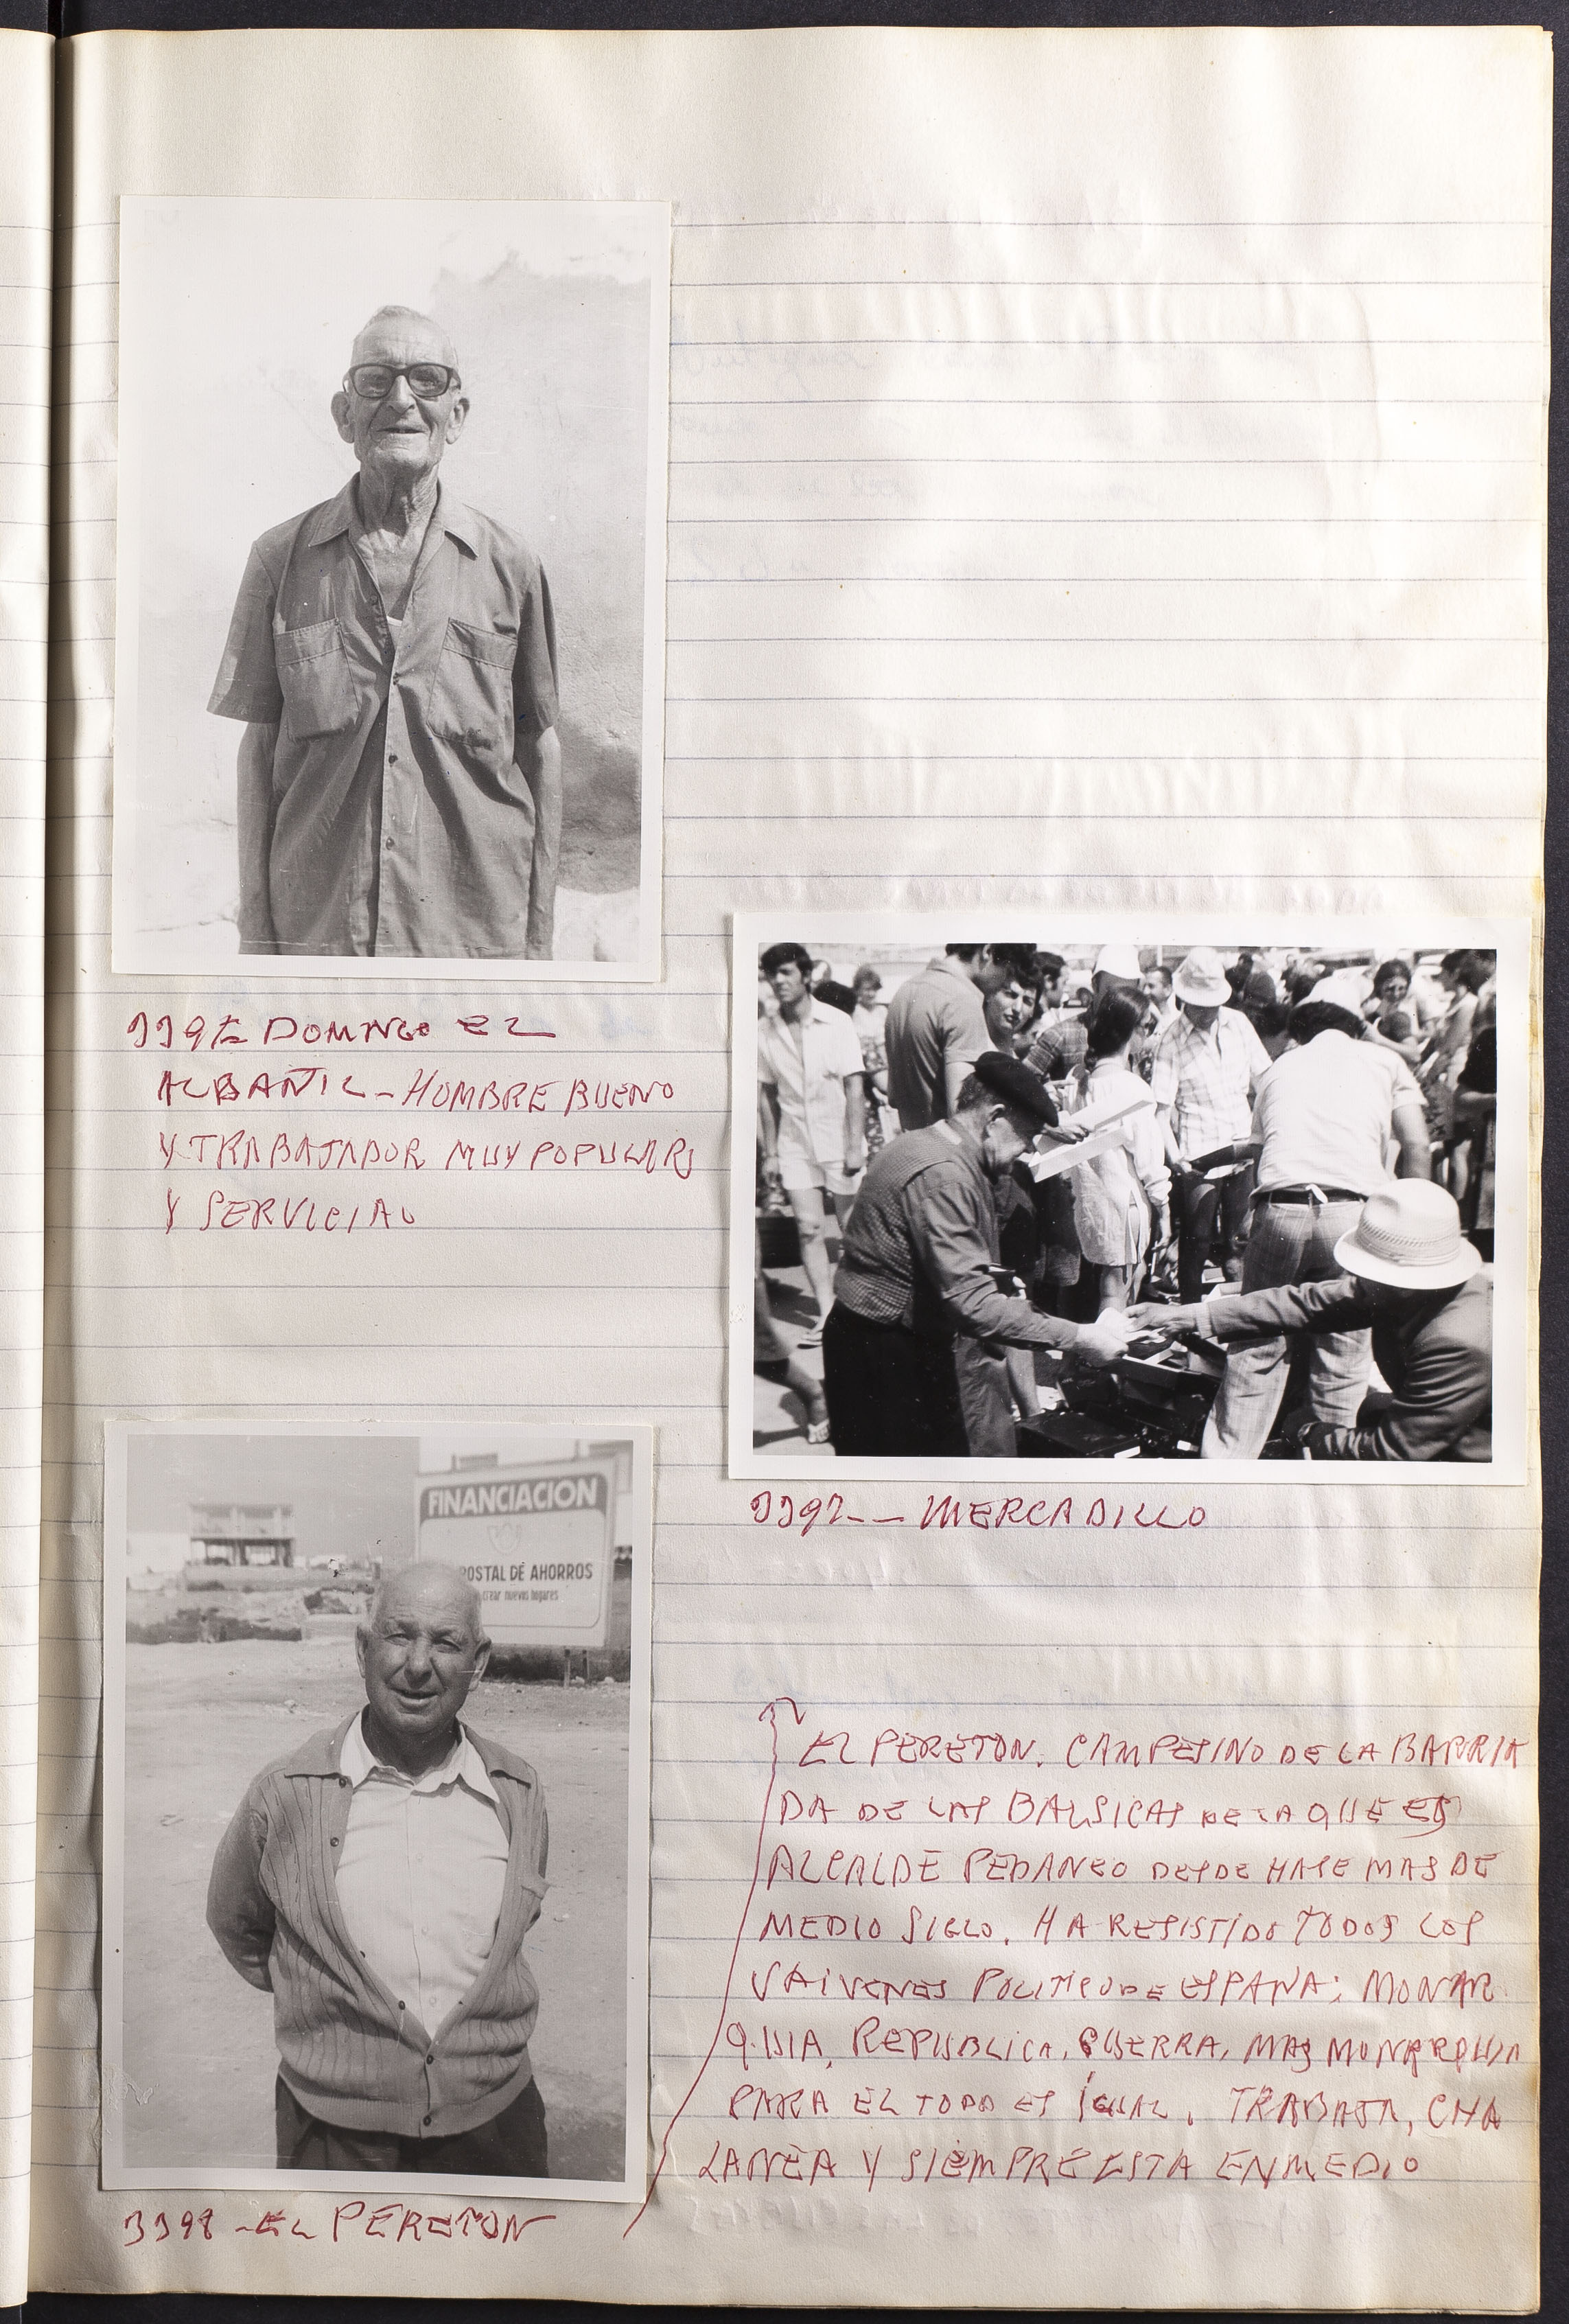 339 DOMINGO EL
ALBAÑIL - HOMBRE BUENO
Y TRABAJADOR MUY POPULAR
Y SERVICIAL
3397 -- MERCADILLO
FINANCIACION
POSTAL DE AHORROS
crear nuevos hogares
3398 - EL PERETON
EL PERETON. CAMPESINO DE LA BARRIA
DA DE LAS BALSICAS DE LA QUE ES
ALCALDE PEDANEO DESDE HASE MAS DE
MEDIO SIGLO. HA RESISTIDO TODOS LOS
VAIVENES POLITICO DE ESPAÑA: MONAR
QUIA, REPUBLICA, GUERRA, MAS MONARQUIA
PARA EL TODO ES IGUAL. TRABAJA, CHA
LANEA Y SIEMPRE ESTA EN MEDIO